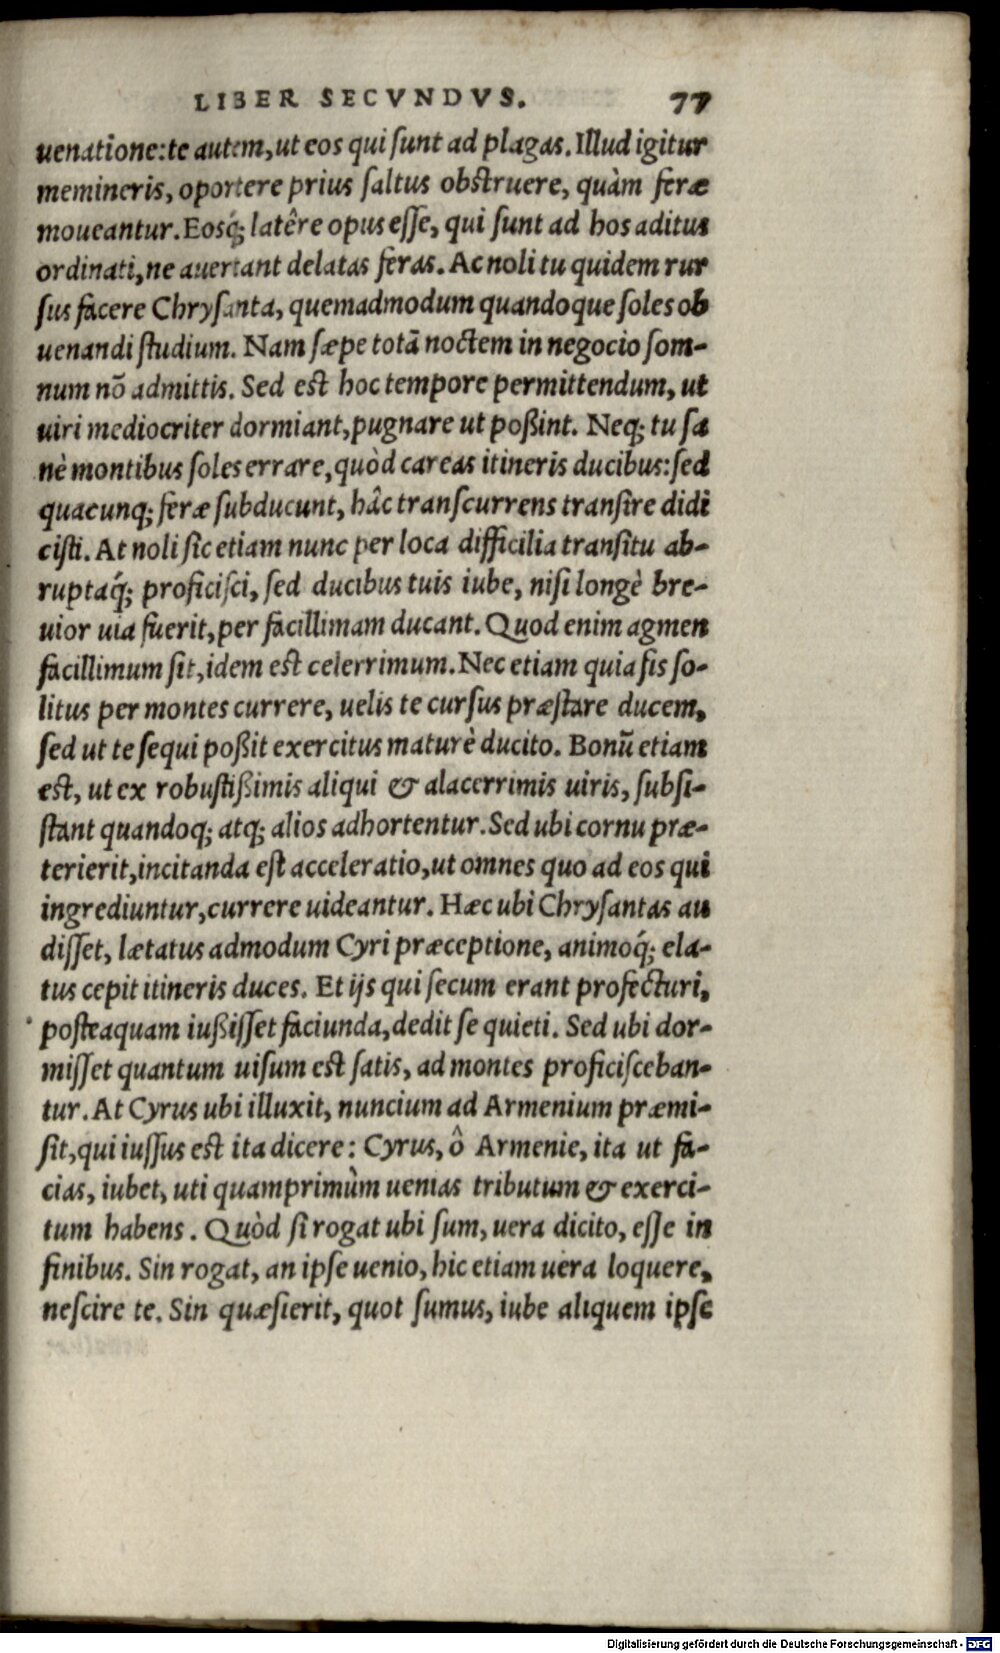 LIBER SECVNDVS. 77
uenatione: te autem, ut eos qui sunt ad plagas. Illud igitur
memineris, oportere prius saltus obstruere, quàm feræ
moueantur. Eosq́; latêre opus esse, qui sunt ad hos aditus
ordinati, ne auertant delatas feras. Ac noli tu quidem rur
sus facere Chrysanta, quemadmodum quandoque soles ob
uenandi studium. Nam sæpe totā noctem in negocio som-
num nō admittis. Sed est hoc tempore permittendum, ut
uiri mediocriter dormiant, pugnare ut poßint. Neq; tu sa
nè montibus soles errare, quòd careas itineris ducibus: sed
quacunq; feræ subducunt, hâc transcurrens transire didi
cisti. At noli sic etiam nunc per loca difficilia transitu ab-
ruptaq́; proficisci, sed ducibus tuis iube, nisi longè bre-
uior uia fuerit, per facillimam ducant. Quod enim agmen
facillimum sit, idem est celerrimum. Nec etiam quia sis so-
litus per montes currere, uelis te cursus præstare ducem,
sed ut te sequi poßit exercitus maturè ducito. Bonū etiam
est, ut ex robustißimis aliqui & alacerrimis uiris, subsi-
stant quandoq; atq; alios adhortentur. Sed ubi cornu præ-
terierit, incitanda est acceleratio, ut omnes quo ad eos qui
ingrediuntur, currere uideantur. Hæc ubi Chrysantas au
disset, lætatus admodum Cyri præceptione, animoq́; ela-
tus cepit itineris duces. Et ijs qui secum erant profecturi,
posteaquam iußisset faciunda, dedit se quieti. Sed ubi dor-
misset quantum uisum est satis, ad montes proficisceban-
tur. At Cyrus ubi illuxit, nuncium ad Armenium præmi-
sit, qui iussus est ita dicere: Cyrus, ô Armenie, ita ut fa-
cias, iubet, uti quamprimùm uenias tributum & exerci-
tum habens. Quòd si rogat ubi sum, uera dicito, esse in
finibus. Sin rogat, an ipse uenio, hic etiam uera loquere,
nescire te. Sin quæsierit, quot sumus, iube aliquem ipse
Digitalisierung gefördert durch die Deutsche Forschungsgemeinschaft - DFG